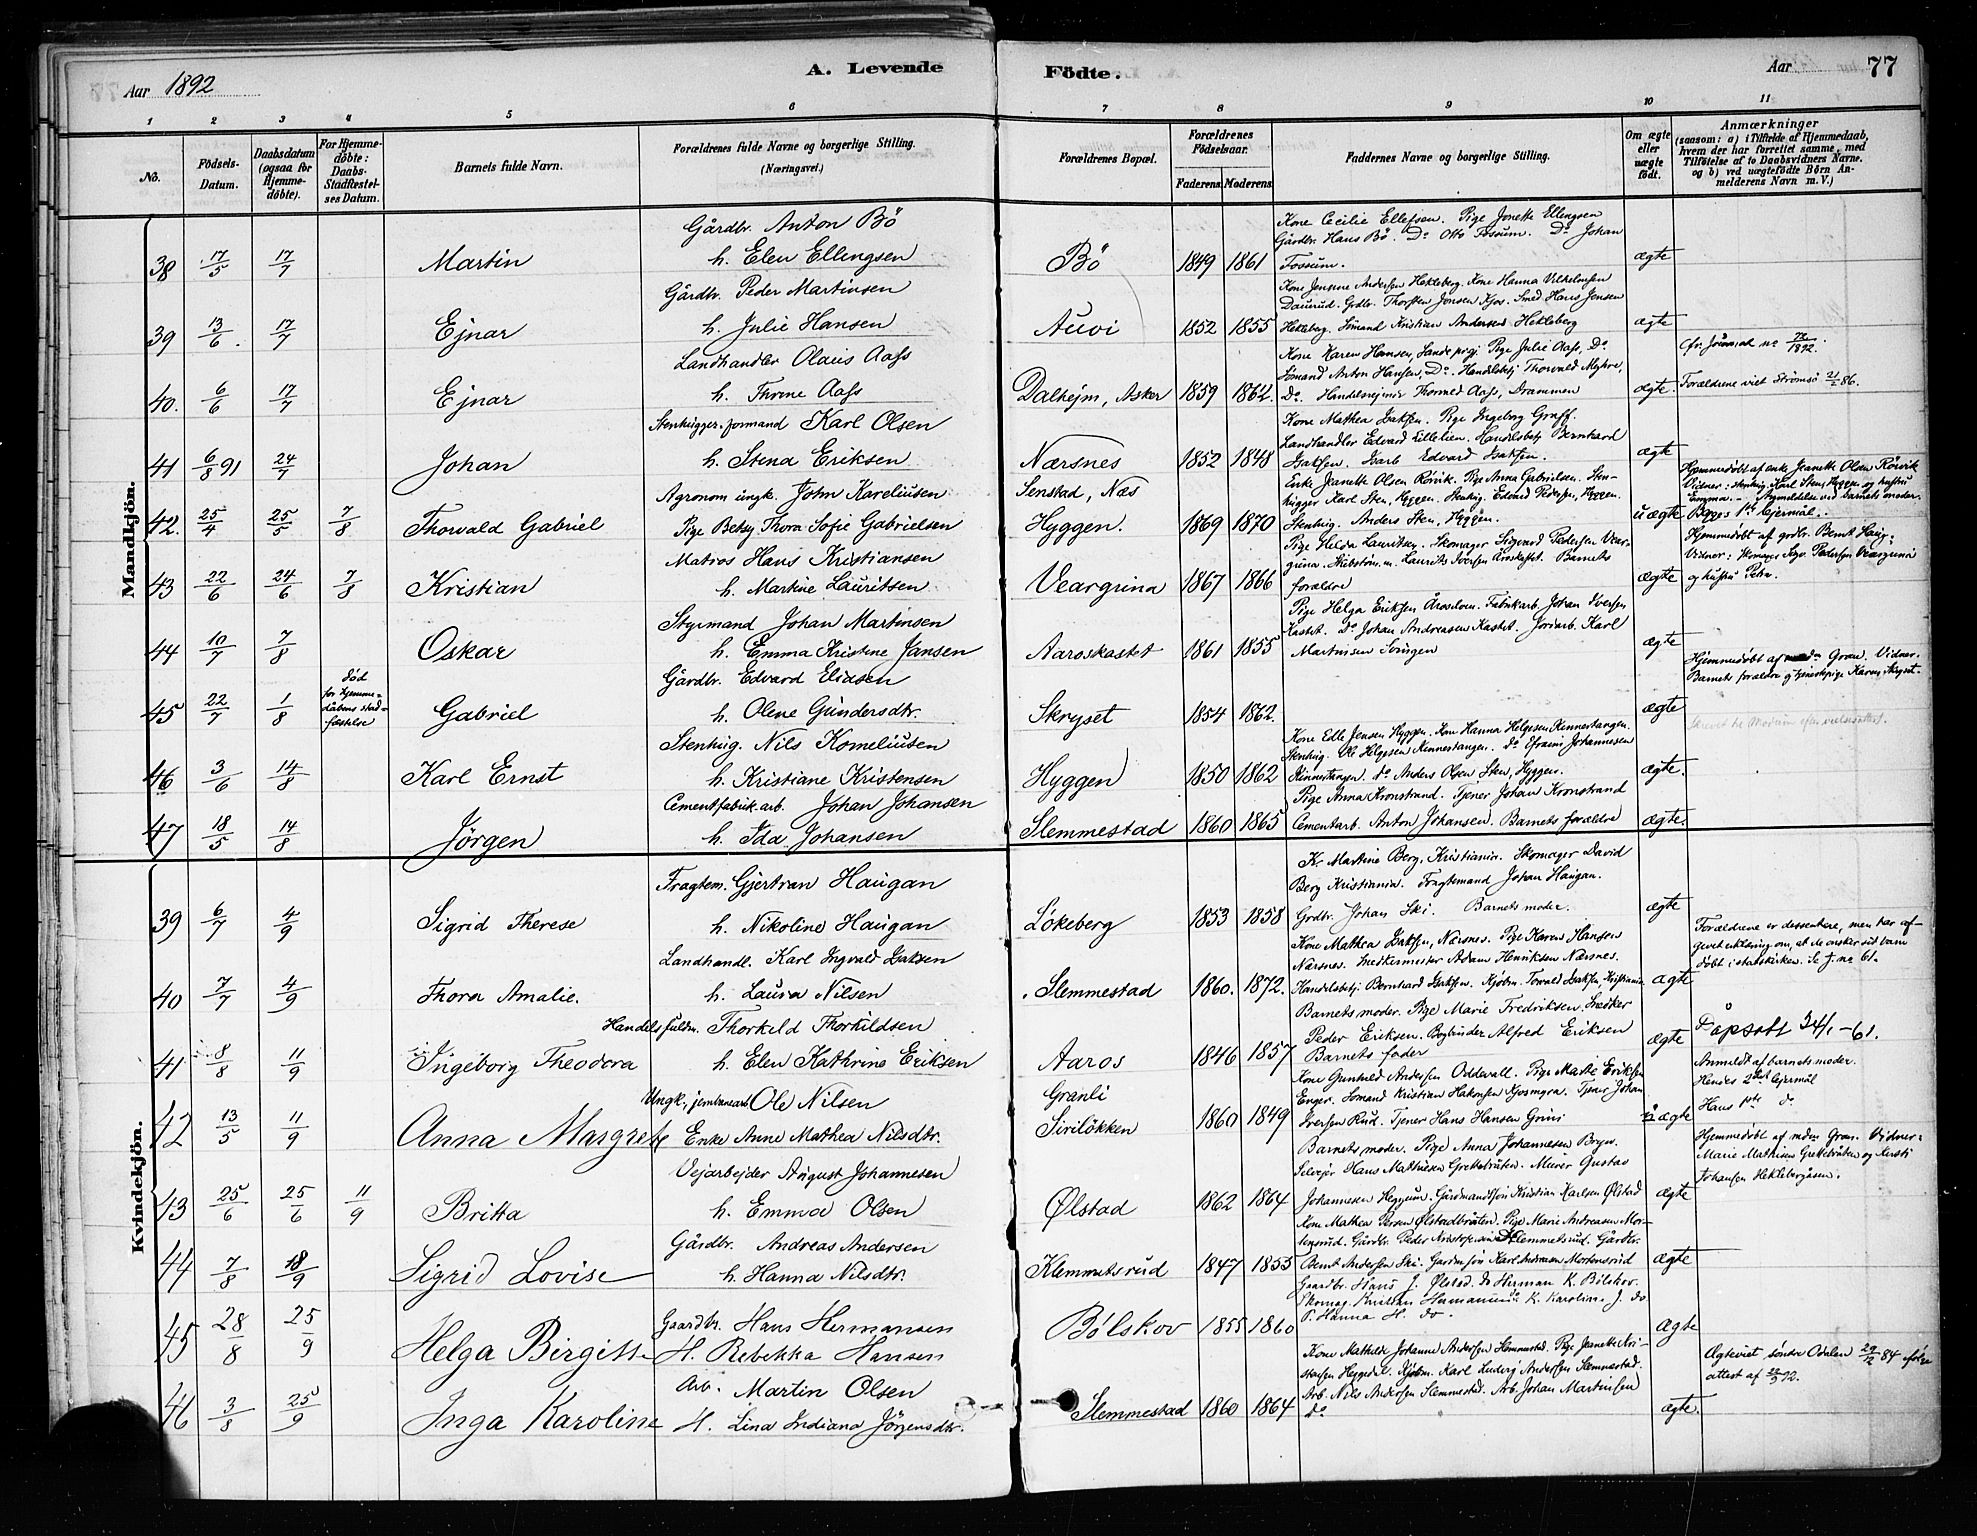 Aar 1892
A. Levende
Födte.
Aar 77
1 2 3 4 5 6 7 8 9 10 11
No.
Födsels-Datum.
Daabsdatum (ogsaa for Hjemmedöbte).
For Hjemmedöbte: Daabs-Stadfæstelses Datum.
Barnets fulde Navn.
Forældrenes fulde Navne og borgerlige Stilling. (Næringsvei.)
Forældrenes Bopæl.
Forældrenes Födselsaar.
Faderens. Moderens.
Faddernes Navne og borgerlige Stilling.
Om ægte eller uægte födt.
Anmærkninger (saasom: a) i Tilfælde af Hjemmedaab, hvem der har forrettet samme, med Tilföielse af to Daabsvidners Navne. og b) ved uægtefödte Börn Anmelderens Navn m. V.)
Mandkjön.
38 17/5 17/7 Martin
Gårdbr. Anton Bö
h. Elen Ellingsen
Bö 1849 1861
Kone Cecilie Ellefsen. Pige Jonette Ellingsen
Gårdbr. Hans Bö. Do Otto Fossum. Do Johan
Fossum.
ægte
39 13/6 17/7 Ejnar
Gårdbr. Peder Martinsen
h. Julie Hansen
Auvi 1852 1855
Kone Jensine Andersen Hekleberg. Kone Hanna Vilhelmsen
Daurud. Grdbr. Thorsten Jonsen Kjos. Smed Hans Jensen
Hekleberg. Sömand Kristian Andersen Hekleberg
ægte
40. 6/6 17/7 Ejnar
Landhandler Olaus Aass
h. Thrine Aass
Dalhejm, Asker 1859 1862.
Kone Karen Hansen, Pige Julie Aass, Do.
Sömand Anton Hansen, Do. Handelsbetj Thorvald Myhre,
Do. Thorvald Aass, Drammen
ægte.
cfr. Journal no 72/1892.
Forældrene viet Strömsö 21/2 86.
41 6/8 91 24/7 Johan
Stenhugger-formand Karl Olsen
h. Stena Eriksen
Nærsnes 1852 1848
Kone Mathea Isaksen. Pige Ingeborg Graff.
Landhandler Edvard Lillelien. Handelsbetj Bernhard
Isaksen. Edvard Isaksen.
ægte
42. 25/4 25/5 7/8 Thorvald Gabriel
Agronom ungk. John Kareliusen
Pige Betsy Thora Sofie Gabrielsen
Senstad, Næs
Hyggen. 1869 1870
Enke Jeanette Olsen Rövik. Pige Anna Gabrielsen. Stenhugger Karl Sten, Hyggen. Stenhug. Edvard Pedersen, Hyggen.
Stenhug. Anders Sten, Hyggen.
uægte
Hjemmedöbt af enke Jeanette Olsen Rövik
Vidner: Stenhug. Karl Sten, Hyggen og hustru
Emma. – Anmeldelse ved barnets moder.
Begges 1ste lejermål.
43 22/6 24/6 7/8 Kristian
Matros Hans Kristiansen
h. Martine Lauritsen
Veargrina 1867 1866
Pige Helda Lauritsen. Skomager Sigvard Pedersen Veargrina. Laurits Iversen Åroskastet. Barnets
forældre
ægte
Hjemmedöbt af grdbr. Bernt Haug.
Vidner: Skomager Sigv. Pedersen Veargrina
og hustru Petra.
44 10/7 7/8 Oskar
Styrmand Johan Martinsen
h. Emma Kristine Jansen
Aaroskastet 1861 1855
Pige Helga Eriksen Åroselven. Fabrikarb. Johan Iversen
Kastet. Do Johan Andreasen Kastet. Jordarb. Karl
Martinsen
ægte
45 22/7 1/8 död för Hjemmedåbens stadfæstelse Gabriel
Gårdbr. Edvard Eliasen
h. Olene Gundersdtr.
Skryset 1854 1862.
ægte
Hjemmedöbt af Gran. Vidner.
Barnets forældre og tjenestepige Karen Skryset.
46 3/6 14/8 Karl Ernst
Stenhug. Nils Korneliusen
h. Kristiane Kristensen
Hyggen 1850 1862
Kone Edle Jensen Hyggen. Kone Hanna Helgesen Kinnertangen.
Stenhug. Ole Helgesen Kinnertangen. do Efraim Johannesen
Kinnertangen. do Anders Olsen Sten, Hyggen.
ægte.
47 18/5 14/8 Jörgen
Cementfabrik.arb. Johan Johansen
h. Ida Johansen
Slemmestad 1860 1865
Pige Anna Kronstrand. Tjener Johan Kronstrand
Cementarb. Anton Johansen. Barnets forældre
ægte.
Kvindekjön.
39 6/7 4/9 Sigrid Therese
Fragtem. Gjertran Haugan
h. Nikoline Haugan
Lökeberg 1853 1858
K. Martine Berg, Kristiania. Skomager David
Berg Kristiania. Fragtemand Johan Haugan.
Grdbr. Johan Ski. Barnets moder.
ægte
40 7/7 4/9 Thora Amalie.
Landhandl. Karl Ingvald Isaksen
h. Laura Nilsen
Slemmestad 1860. 1872.
Kone Mathea Isaksen, Nærsnes. Pige Karen Hansen
Nærsnes. Snedkermester Adam Henriksen Nærsnes.
Handelsbetj Bernhard Isaksen. Kjöbm. Torvald Isaksen Kristiania
ægte
Forældrene er dessentere, men har afgivet erklæring om, at de önsker sit barn
döbt i statskirken. Se J. no 61.
41 8/8 11/9 Ingeborg Theodora
Handelsfuldm. Thorkild Thorkildsen
h. Elen Kathrine Eriksen
Aaros 1846 1857
Barnets moder. Pige Marie Fredriksen Snedker
Peder Eriksen. Bogbinder Alfred Eriksen
Barnets fader
ægte
Dåpsatt 34/1–61.
42 13/5 11/9 Anna Margrete
Ungk., jernbanearb Ole Nilsen
Enke Anne Mathea Nilsdtr.
Granli
Siriløkken 1860 1849
Kone Gunhild Andersen Oddevall. Pige Marte Eriksen
Enger. Sömand Kristian Hakonsen Kjosmgra. Tjener Johan
Iversen Rud. Tjener Hans Hansen Grini
uægte
Anmeldt af barnets moder.
Hendes 2det lejermål
Hans 1ste do
43 25/6 25/6 11/9 Britta
Vejarbejder August Johannesen
h. Emma Olsen
Ølstad 1862 1864
Barnets moder. Pige Anna Johannesen Bryn.
Selvejer Hans Mathisen Grettebråten. Murer Gustav
Johannesen Heggum. Gårdmandssön Kristian Karlsen Ølstad
ægte
Hjemmedöbt af mdm Gran. Vidner:
Marie Mathisen Grettebråten og Kersti
Johansen Heklebergåsen.
44 7/8 18/9 Sigrid Lovise
Gårdbr. Andreas Andersen
h. Hanna Nilsdtr.
Klemmetsrud 1847 1855
Kone Mathea Persen Ølstadbråten. Pige Marie Andreasen Mortensrud. Gårdbr. Peder Kristofersen Klemmetsrud. Gårdbr.
Bernt Andersen Ski. Gardmsön Karl Andreasen Mortensrud
ægte
45 28/8 25/9 Helga Birgitte
Gaardbr. Hans Hermansen
H. Rebekka Hansen
Bölskov 1855 1860
Gaardbr. Hans J. Ølstad. do Herman K. Bölskov.
Skomag. Kristian Hermansen do K. Karoline J. do
P. Hanna H. do.
ægte
46 3/8 25/9 Inga Karoline
Arb. Martin Olsen
H. Lina Indiana Jörgensdtr.
Slemmestad 1860 1864
Kone Mathilde Johanne Andersen Slemmestad. Pige Jeanette Kristensen Heggedal. Kjöbm. Karl Ludvig Andersen Slemmestad.
Arb. Nils Andersen Slemmestad. Arb. Johan Martinsen
do
ægte.
Ægteviet söndre Odalen 29/12 84 ifölge
attest af 22/9 92.